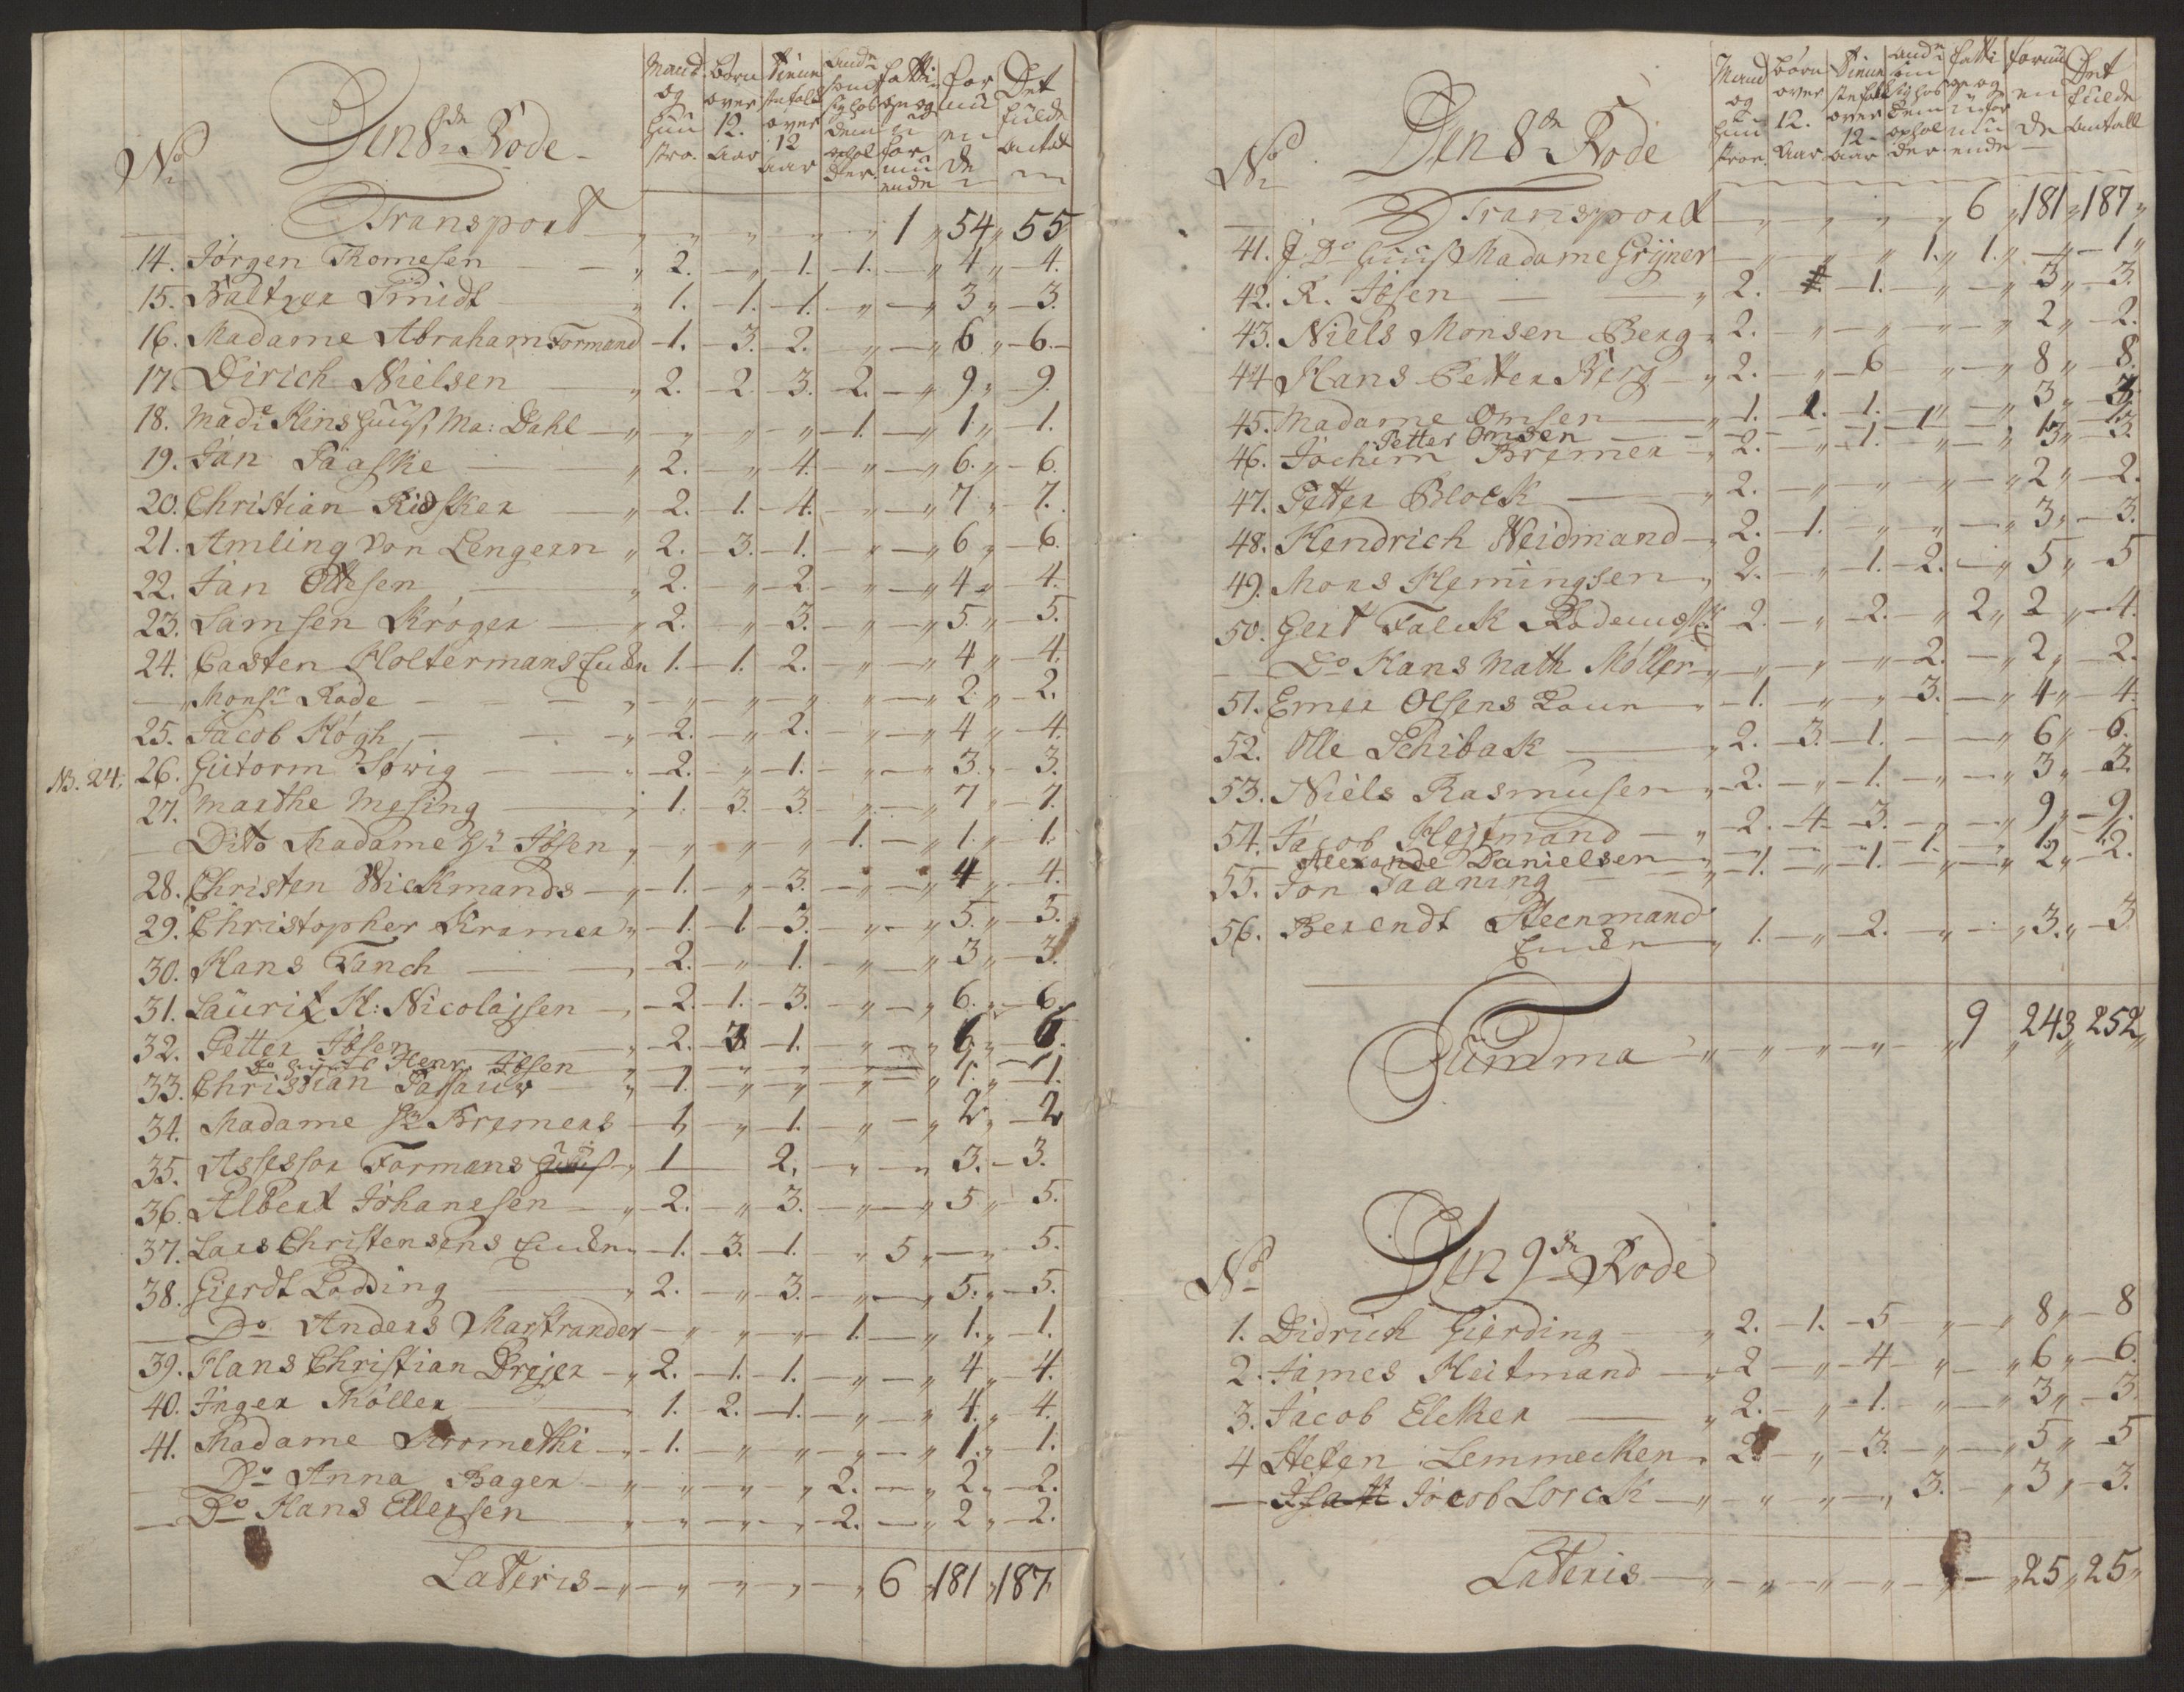 No Den 8de Rode
Mand og Hustro. Børn over 12. Aar Tienestefolk over 12 aar Andre som sig hos dem opholder. fattige og uformuende formuende Det fulde Antal
Transport „ „ „ „ 1 „ 54 „ 55
14. Jørgen Thomesen „ 2. — „ — 1. — 1. — „ 4 „ — 4.
15. Baltzer Smidt „ 1. — 1. — 1. — „ — „ 3 „ — 3.
16. Madame Abraham Formand — 1. — 3. — 2. — „ — „ 6 „ — 6. —
17. Dirich Nielsen „ 2. — 2. — 3. — 2. — „ 9 „ — 9.
18. Made Kins Huus, Ma: Dahl — „ — „ — „ — „ — 1. — „ 1 „ — 1.
19. Jan Paaske — „ 2. — „ — 4. — „ — „ 6. „ — 6.
20. Christian Risker — „ 2. — 1. — 4. — „ — „ 7 „ — 7.
21. Amling Von Lengern „ 2. — 3. — 1. — „ — „ 6 „ — 6.
22. Jan Ottesen — „ 2. — „ — 2. — „ — „ 4 „ — 4.
23. Samsen Krøger — „ 2. — „ — 3. — „ — „ 5. „ — 5.
24. Casten Holtermans Enke 1. — 1. 2. — „ — „ 4 „ — 4.
— „ Monsr Rode — — — „ — „ — „ — „ — „ — „ 2. „ — 2.
25. Jacob Høgh — — „ — 2. — „ — 2. — „ — „ 4 „ — 4.
NB. 24. 26. Gutorm Søwig — — „ — 2. — „ — 1. — „ — „ 3. „ — 3.
27. Marthe Mesing — „ 1. — 3. — 3. — „ — „ 7 „ — 7.
— Dito Madame Jbsen „ — „ — „ — „ — 1. — „ 1. „ — 1.
28. Christen Wickmands — „ — 1. — „ — 3. — „ — „ 4 „ — 4.
29. Christopher Kramer „ — 1. — 1 — 3. — „ — „ 5. „ — 5.
30. Hans Fanch — — „ — 2. — „ — 1. — „ — „ 3 „ — 3.
31. Lauritz H: Nicolajsen — „ — 2. — 1. — 3. — „ — „ 6. „ — 6.
32. Petter Jbsen — „ — 2. — 3 — 1. — „ — „ 6 „ — 6.
Do Henr. Jbsen „ — „ — „ — „ — „ 1
33. Christian Passauw „ — 1. — „ — „ — „ — „ 1. — 1.
34. Madame Sr Bremers — 1, — „ — 1. — „ — „ 2 „ — 2
35. Assessor Formans Huus „ 1 — 2, — „ — „ 3. — 3.
36. Albert Johansen — „ — 2. — „ — 3. — „ — „ 5 „ — 5.
37. Lars Christensens Enke „ — 1. — 3. — 1. — „ 5 „ — „ — 5.
38. Gierdt Lodding — „ 2. — „ — 3. — „ — „ 5. „ — 5.
— Do Anders Marstrander — „ — „ — „ — 1. — „ 1. „ — 1.
39. Hans Christian Drejer — „ 2. — 1. — 1. — „ — „ 4 „ — 4.
40. Inger Møller — „ 1. — 2. — 1. — „ — „ 4. „ — 4.
41. Madame Kromethi — „ — 1. — „ — „ — „ — „ 1. „ — 1.
Do Anna Bager — „ — „ — „ — „ 2. — „ 2. „ — 2.
— Do Hans Ellersen — „ — „ — „ — „ 2. — „ 2 „ — 2.
Lateris — „ — „ — „ — „ — „ 6 „ 181 „ 187.
No Den 8de Rode
Mand og Hustroe. Børn over 12. Aar. Tienestefolk over 12 aar andre som sig hos dem opholder. fattige og uformuende formuende Det fulde Antall
Transport „ — „ — „ — „ 6 „ 181 „ 187 „
41. Do Huus Madame Grÿner — „ — „ — „ 1. „ 1. „ — „ — 1 „
42. R. Jbsen — — „ 2. 1. — „ — „ 3 „ — 3.
43. Niels Monsen Berg „ 2. — „ — „ — „ — „ 2 „ — 2.
44 Hans Petter Berg — „ 2. — „ — 6 — „ — „ 8 „ — 8.
45. Madame Omsen — „ — 1. — 1. — 1. — „ — „ 3 „ — 3.
Petter Omsen — — — — 1 — 1
46. Jochim Bremer — „ 2. — „ — 1. — „ — „ 3 „ — 3.
47. Petter Block — „ 2. — „ — „ — „ — „ 2 „ — 2.
48. Hendrich Weidmand — „ 2. — 1. — „ — „ — „ 3 „ — 3.
49. Mons Hemingsen „ 2. — „ — 1. — 2. — „ 5 „ — 5
50. Gert Falck — 2. — „ — 2. — „ 2 „ 2 „ — 4.
— Do Hans Math Møller — „ — „ — „ — 2. — „ 2 „ — 2.
51. Emer Olsens — „ — 1. — „ — „ 3. — „ 4 „ — 4.
52. Olle Schibak — „ 2. — 3. — 1. — — „ 6 „ — 6.
53. Niels Rasmusen „ 2. — „ — 1. — „ — „ 3 „ — 3.
54. Jacob Hejtmand — „ — 2. — 4 — 3. — „ — „ 9 „ — 9.
Alexande Danielsen — „ — „ — „ — 1. — „ 1. — 1
55. Jon Daaning — „ — 1. — „ — 1. — „ — „ 2 „ — 2.
56. Berendt Steenmand
Enke „ 1. — „ — 2. — „ — „ 3. „ — 3
Summa „ — „ — „ — „ — „ 9 „ 243 „ 252 „
No Den 9de Rode
1. Didrich Gierding — „ 2. — 1. — 5 — „ — „ 8 „ — 8
2. James Heitmand — „ 2 — „ — 4 — „ — „ 6 „ — 6.
3. Jacob Elcker — „ 2. — „ — 1. — „ — „ 3 „ — 3.
4 Steffen Lemmecken „ 2. — „ — 3. — „ — „ 5 „ — 5
— Jocob Lorck — „ — „ — „ 3. — „ 3 „ — 3.
Lateris — „ — „ — „ — „ — „ — „ 25 „ 25 „